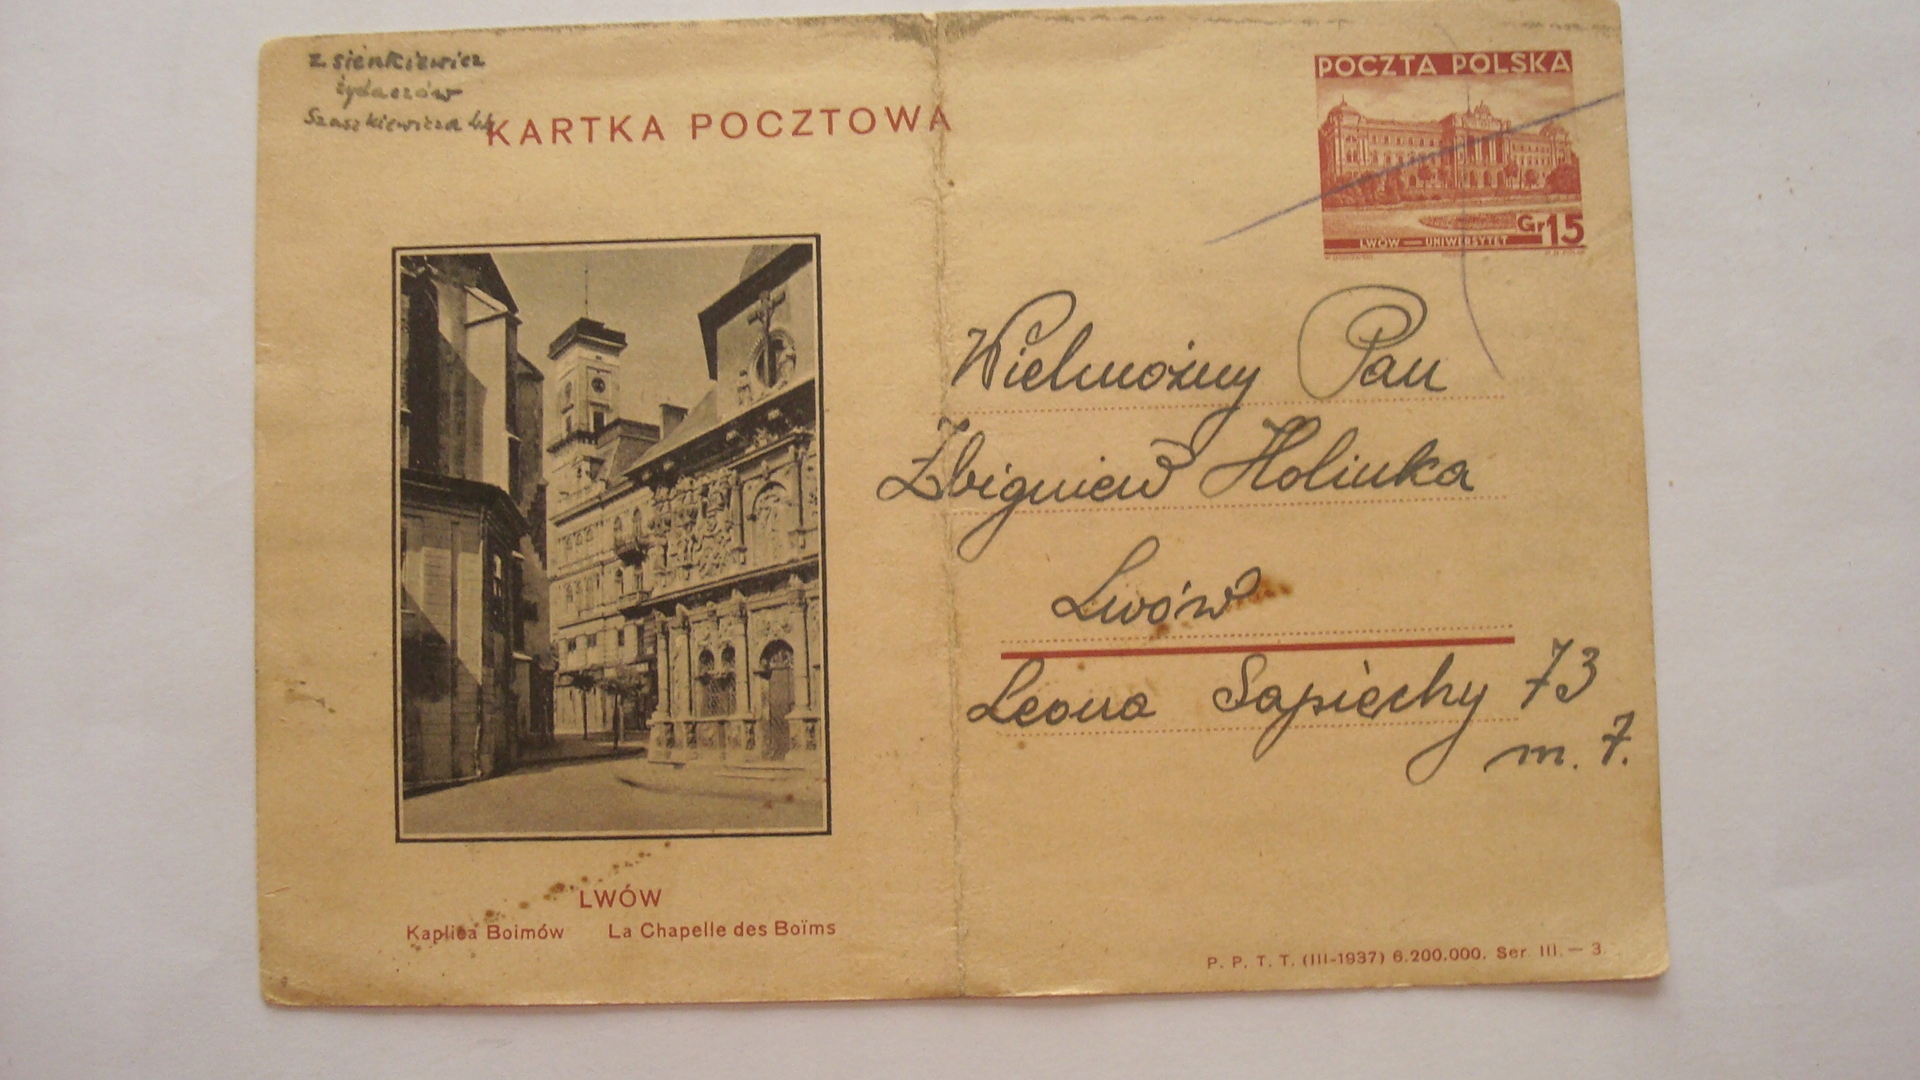 Z. Sienkiewicz
Żydaczów
Szaszkiewicza 44
KARTKA POCZTOWA
POCZTA POLSKA
Gr 15
LWÓW — UNIWERSYTET
Wielmożny Pan
Zbigniew Holinka
Lwów
Leona Sapiechy 73
m. 7.
LWÓW
Kaplica Boimów La Chapelle des Boïms
P. P. T. T. (III-1937) 6.200.000. Ser. III. — 3.